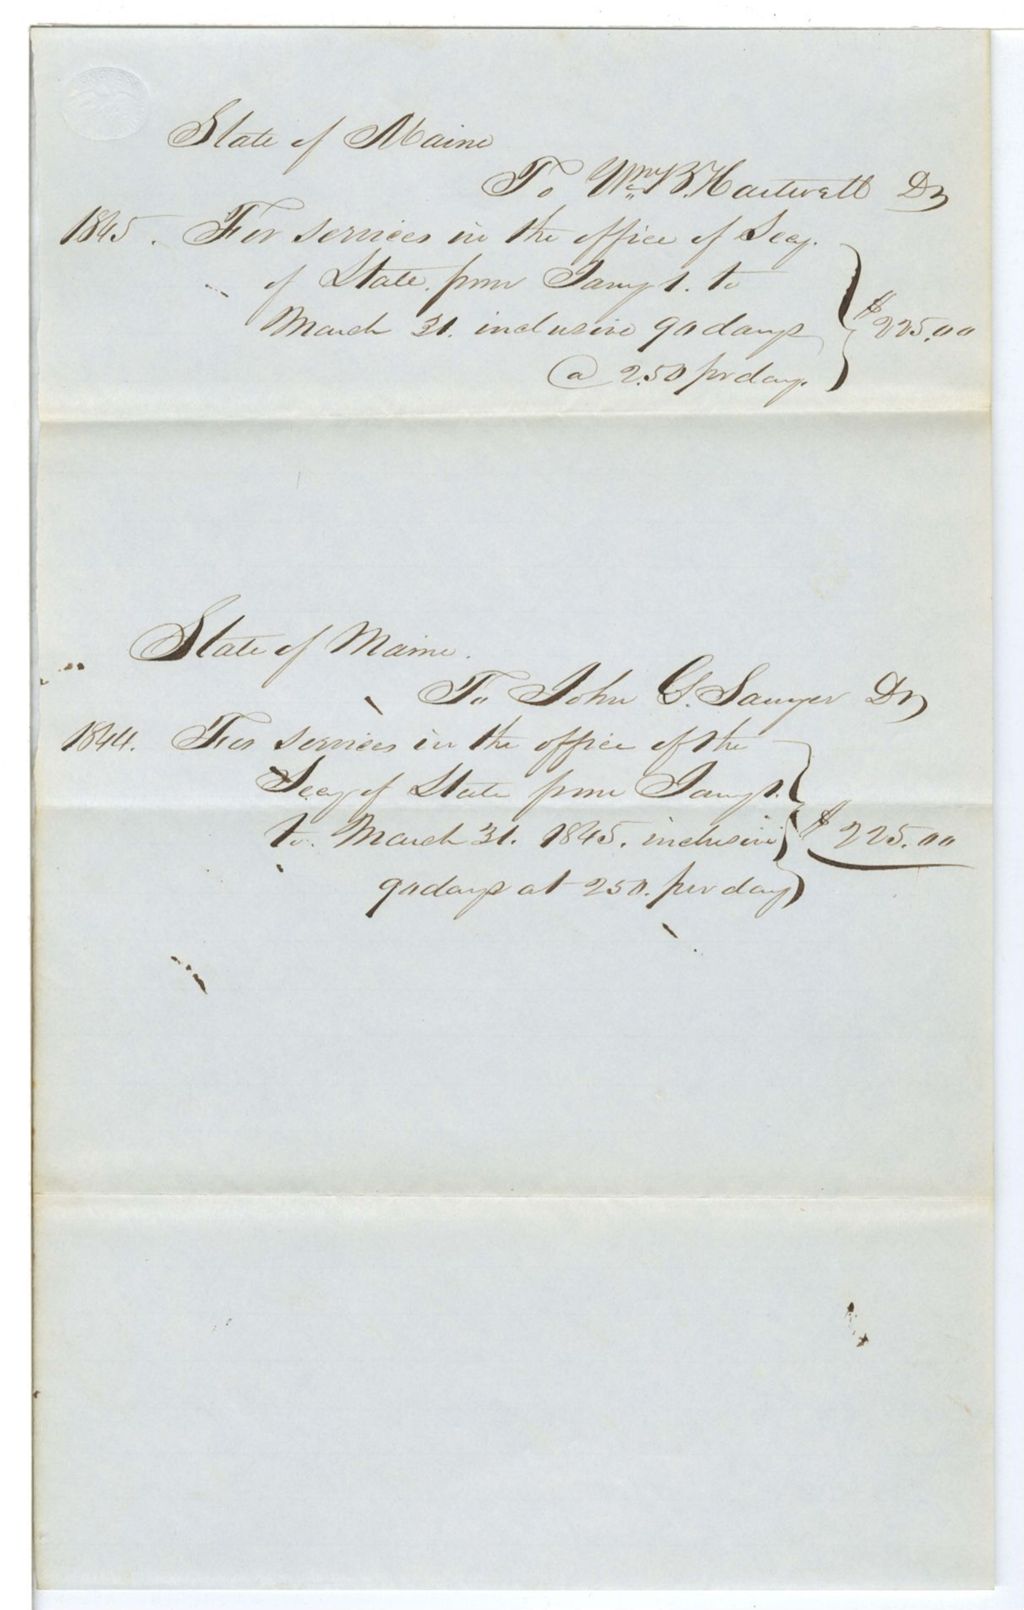 State of Maine
To Wm B. Hartwell Dr
1845. For services in the office of Secy.
of State. from Jany 1. to
March 31. inclusive 90 days
@ 2.50 pr day. $225.00
State of Maine.
To John G. Sawyer Dr
1844. For services in the office of the
Secy of State from Jany 1.
to March 31. 1845. inclusive $225.00
90 days at 250. per day